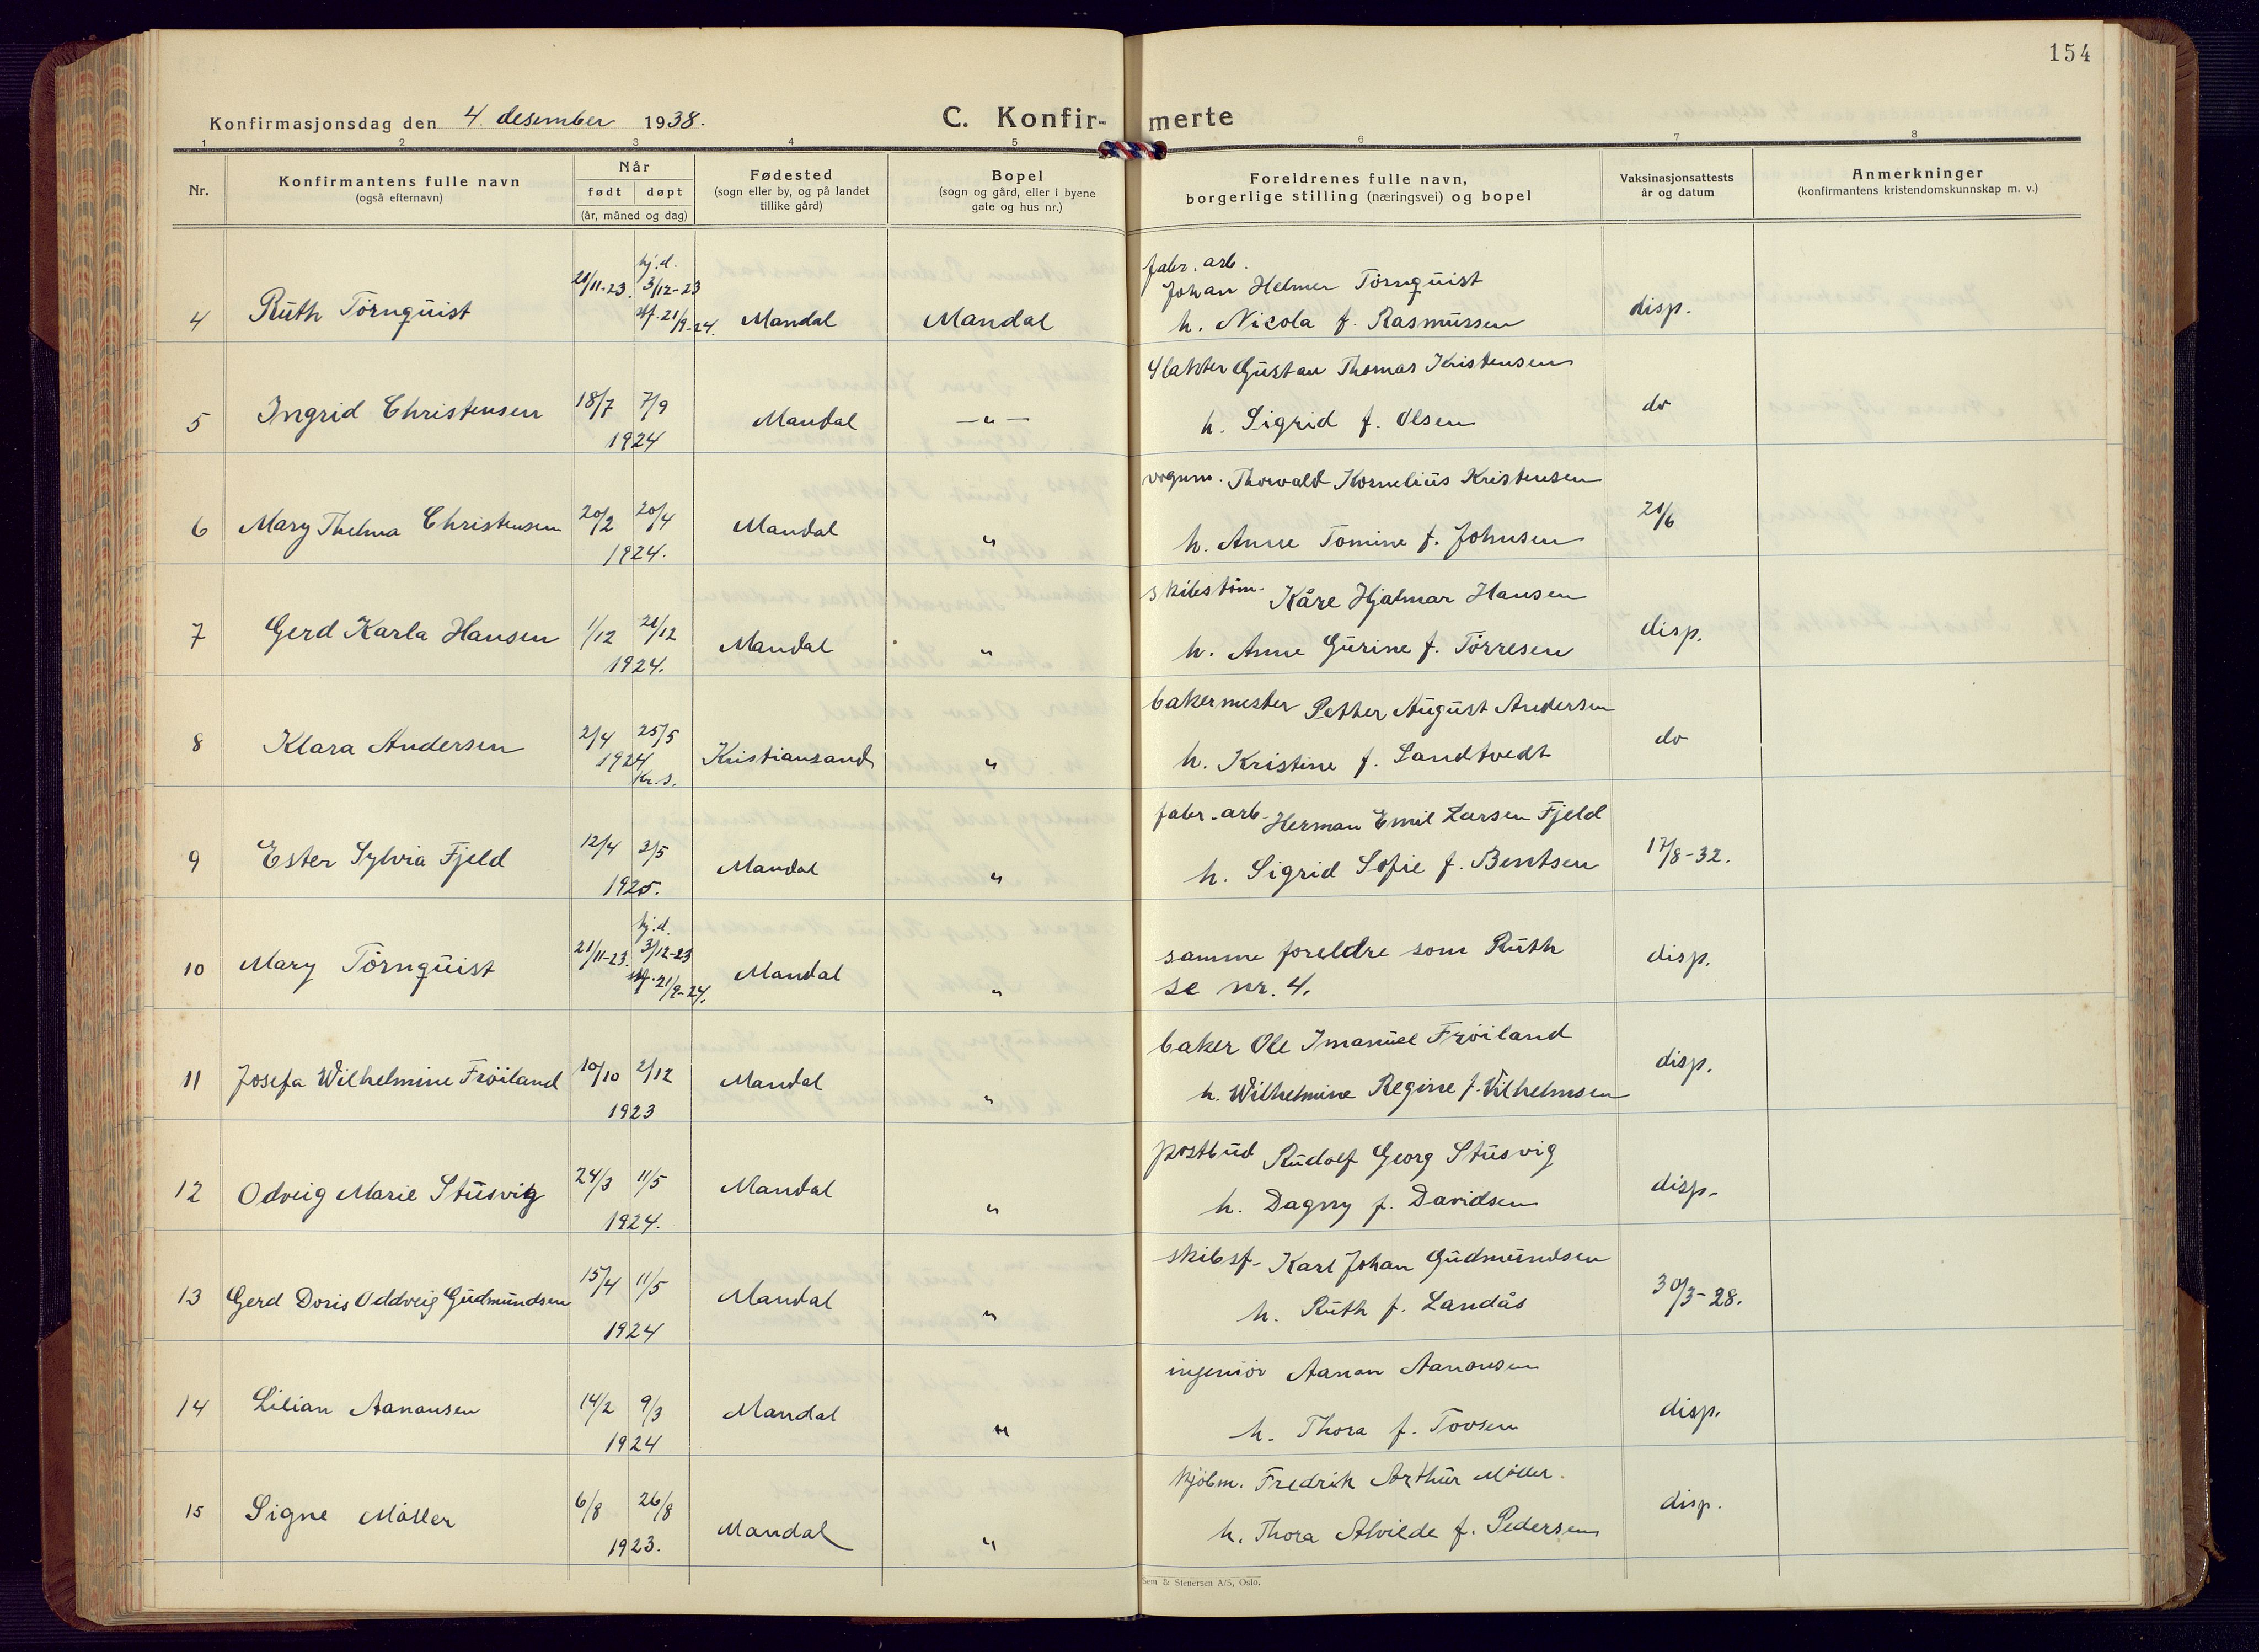 154
Konfirmasjonsdag den 4. desember 1938.
C. Konfir- merte
1 2 3 4 5 6 7 8
Nr.
Konfirmantens fulle navn
(også efternavn)
Når
født døpt
(år, måned og dag)
Fødested
(sogn eller by, og på landet
tillike gård)
Bopel
(sogn og gård, eller i byene
gate og hus nr.)
Foreldrenes fulle navn,
borgerlige stilling (næringsvei) og bopel
Vaksinasjonsattests
år og datum
Anmerkninger
(konfirmantens kristendomskunnskap m. v.)
hj. d.
21/11-23. 3/12-23
fabr. arb.
Johan Helmer Törnquist
4 Ruth Törnquist 21/9-24. Mandal Mandal h. Nicola f. Rasmussen disp.
Slakter Gustav Thomas Kristensen
5 Ingrid Christensen 18/7 7/9 Mandal —"— h. Sigrid f. Olsen do
1924
vognm. Thorvald Kornelius Kristensen
6 Mary Thelma Christensen 20/2 20/4 Mandal " h. Anne Tomine f. Johnsen 21/6
1924.
skibstöm. Kåre Hjalmar Hansen
7 Gerd Karla Hansen 1/12 21/12 Mandal " h. Anne Gurine f. Törresen disp.
1924.
bakermester Petter August Andersen
8 Klara Andersen 2/4 25/5 Kristiansand " h. Kristine f. Sandtvedt do
1924
Kr. S.
fabr. arb. Herman Emil Larsen Fjeld
9 Ester Sylvia Fjeld 12/4 3/5 Mandal " h. Sigrid Sofie f. Bentsen 17/8-32.
1925.
hj. d.
10 Mary Törnquist 21/11-23. 3/12-23 Mandal " samme foreldre som Ruth disp.
21/9-24.
se nr. 4.
baker Ole Imanuel Fröiland
11 Josefa Wilhelmine Fröiland 10/10 2/12 Mandal " h. Wilhelmine Regine f. Vilhelmsen disp.
1923
postbud Rudolf Georg Stusvig
12 Odveig Marie Stusvig 24/3 11/5 Mandal " h. Dagny f. Davidsen disp.
1924.
skibsf. Karl Johan Gudmundsen
13 Gerd Doris Oddveig Gudmundsen 15/4 11/5 Mandal " h. Ruth f. Landås 30/3-28.
1924
ingeniör Aanon Aanonsen
14 Lilian Aanonsen 14/2 9/3 Mandal " h. Thora f. Tovsen disp.
1924
kjöbm. Fredrik Arthur Möller.
15 Signe Möller 6/8 26/8 Mandal " h. Thora Alvilde f. Pedersen disp.
1923.
Sem & Stenersen A/S, Oslo.